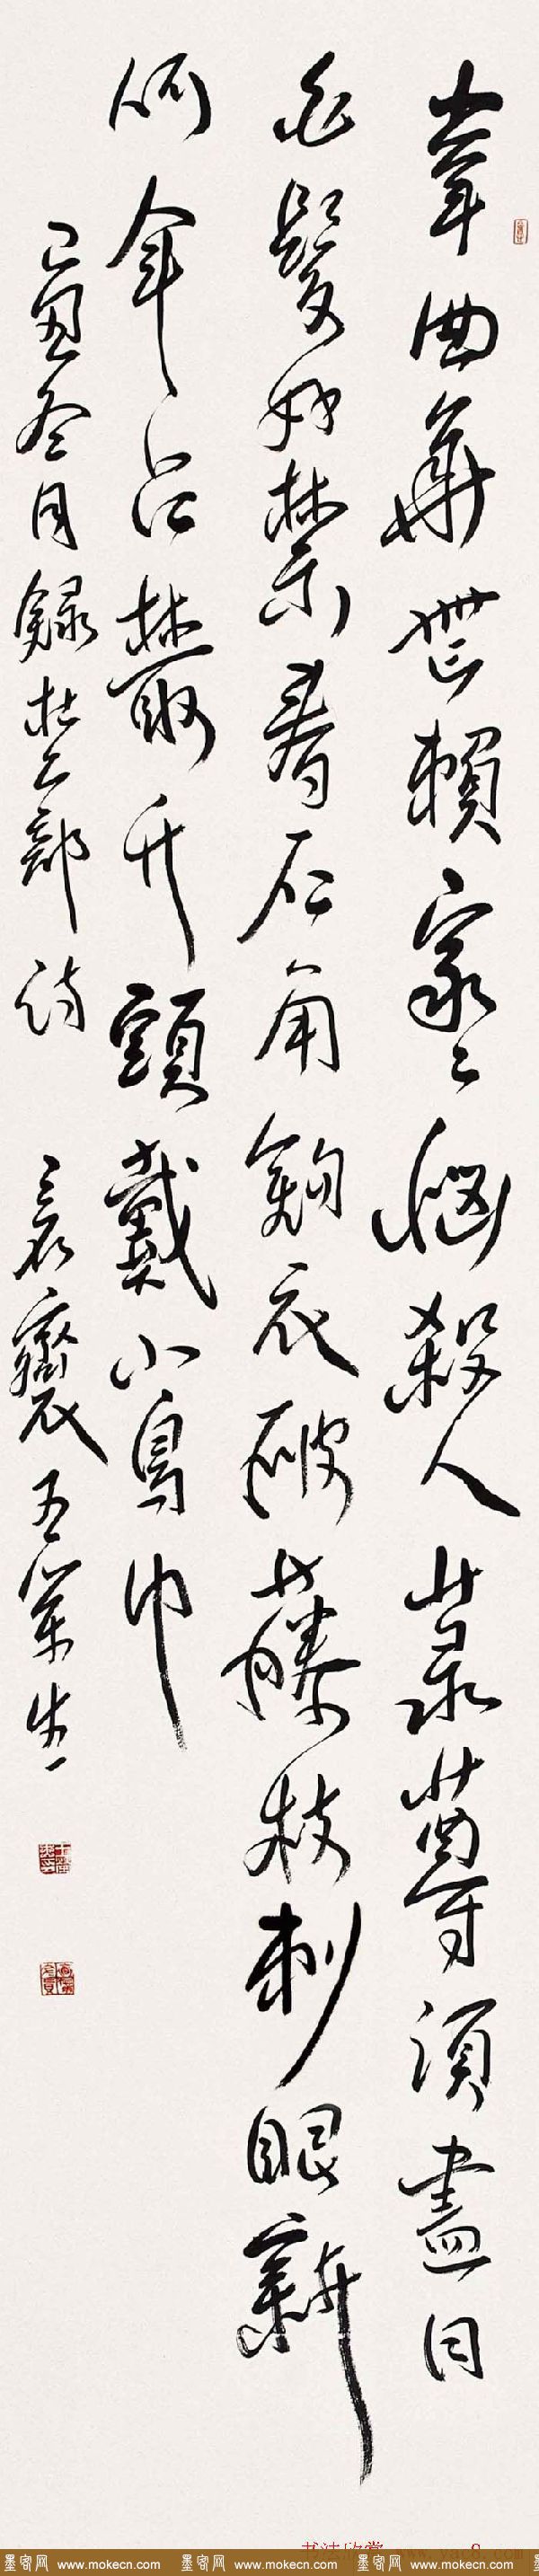 韋曲華無賴家〻惱殺人菉尊須盡日
白髮好禁春石角鉤衣破藤枝刺眼新
何年占叢竹頭戴小烏巾
己丑冬月錄杜工部詩
书法欣赏
墨客网 www.mokecn.com 墨客网 www.mokecn.com 墨客网 www.mokecn.com 墨客网 www.mokecn.com